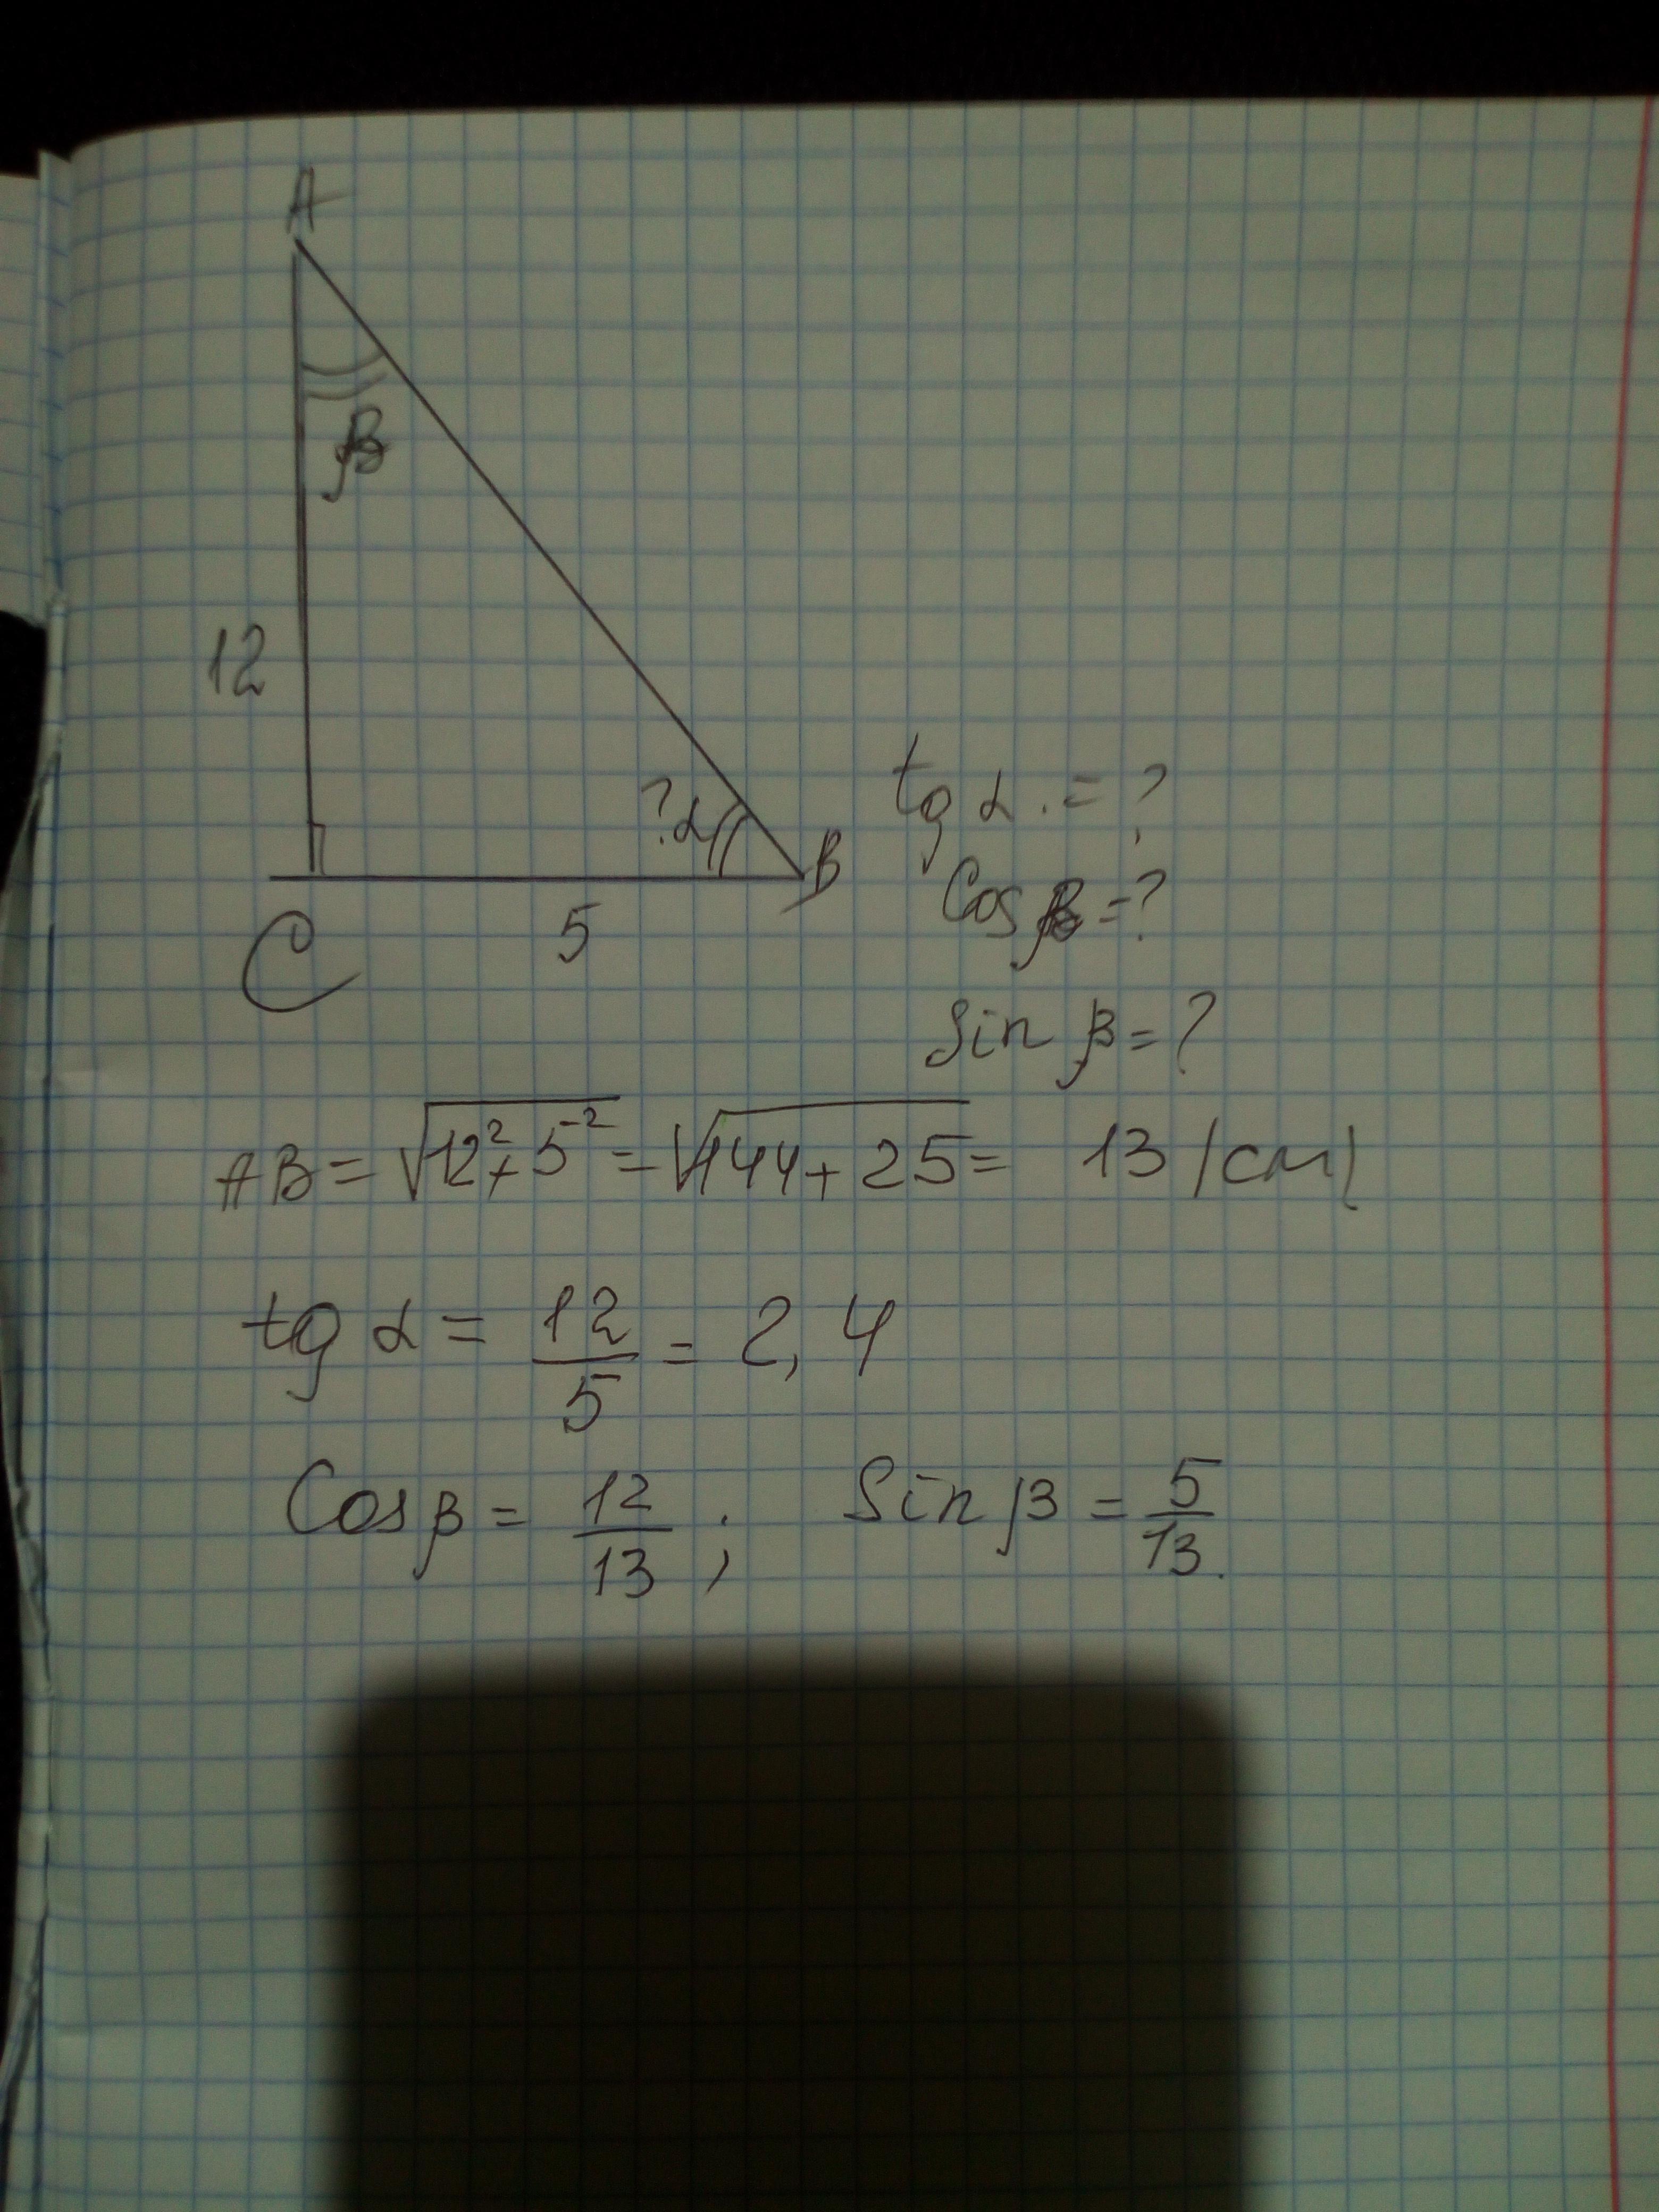 A
β
12
?α
B
C
5
tg α . = ?
Cos β = ?
Sin β = ?
AB = √12² + 5² = √144 + 25 = 13 (см)
tg α = 12/5 = 2,4
Cos β = 12/13 ; Sin β = 5/13.